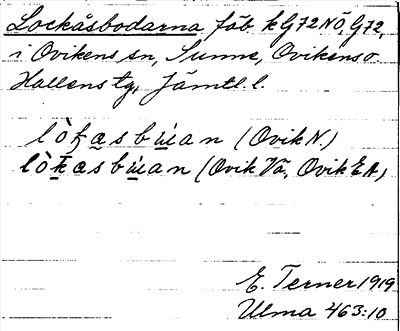 Lockåsbodarna fäb. kG72NÖ, G72,
i Ovikens sn, Sunne, Ovikens o.
Hallens tg, Jämtl. l.
lòꞎasbúan (Ovik N.)
lòkasbúan (Ovik Vä, Ovik EA)
E. Terner 1919
Ulma 463:10